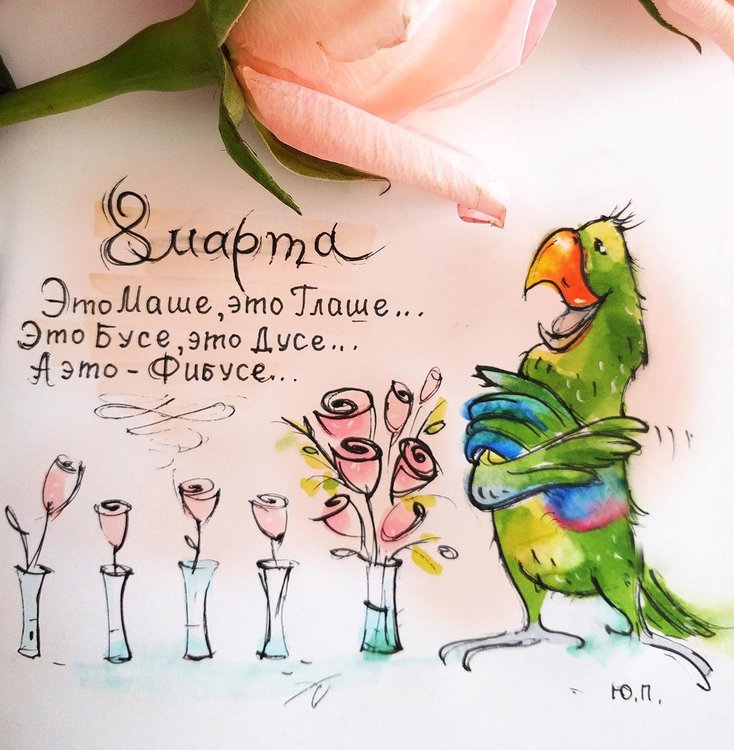 8 марта
Это Маше, это Глаше...
Это Бусе, это Дусе...
А это - Фибусе...
Ю.П.